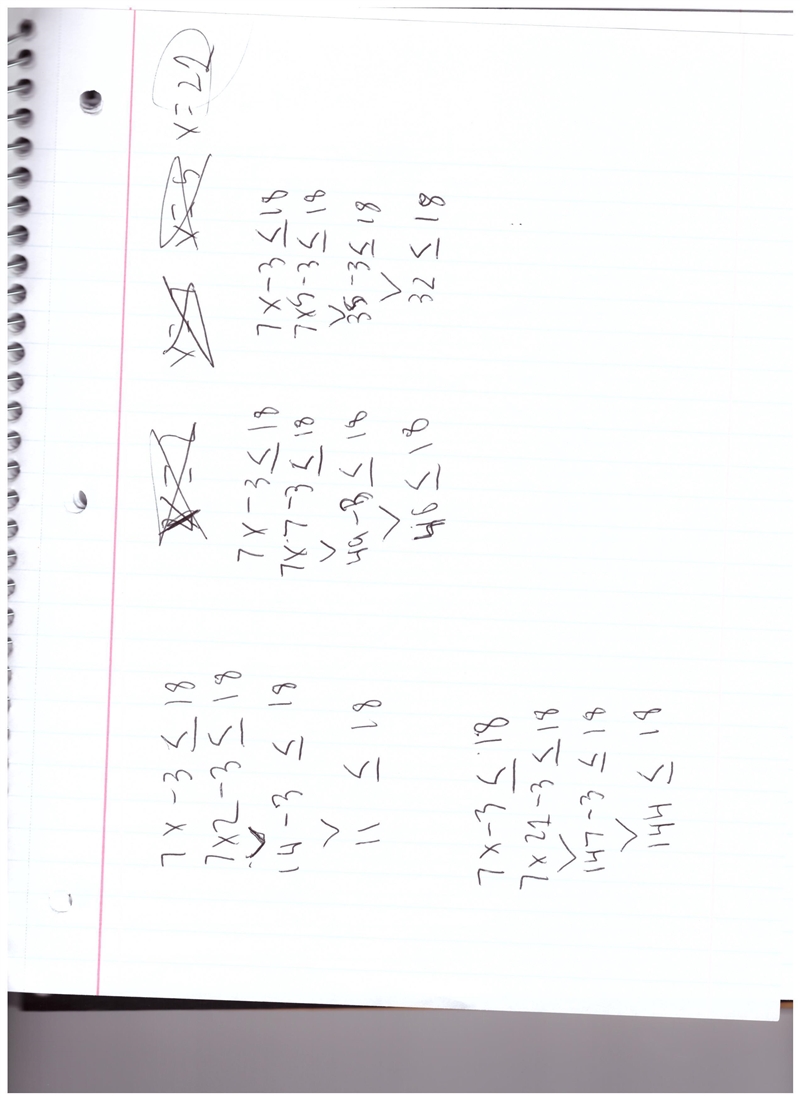 x=2 x=7 x=5 x=22
7x-3≤18
7x2-3≤18
14-3≤18
11≤18
7x-3≤18
7x7-3≤18
49-3≤18
46≤18
7x-3≤18
7x5-3≤18
35-3≤18
32≤18
7x-3≤18
7x21-3≤18
147-3≤18
144≤18